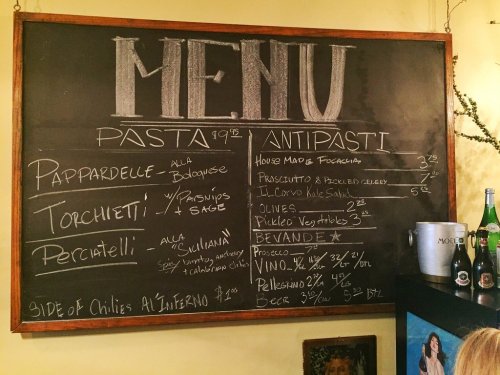 MENU
PASTA $9.95
PAPPARDELLE - ALLA Bolognese
TORCHIETTI - W/ PARSNIPS + SAGE
Perciatelli - ALLA "Siciliana"
Spicy tomatoes, anchovy + calabrian chilies
SIDE OF CHiLiES Al'INFERNO $1.00
ANTIPASTI
HOUSE MADE FOCACCIA 3
PROSCIUTTO & PICKLED CELERY 7
IL CORVO Kale Salad 5
OLIVES 2
Pickled Vegetables 3
BEVANDE
PROSECCO 7
VINO
Pellegrino
Beer